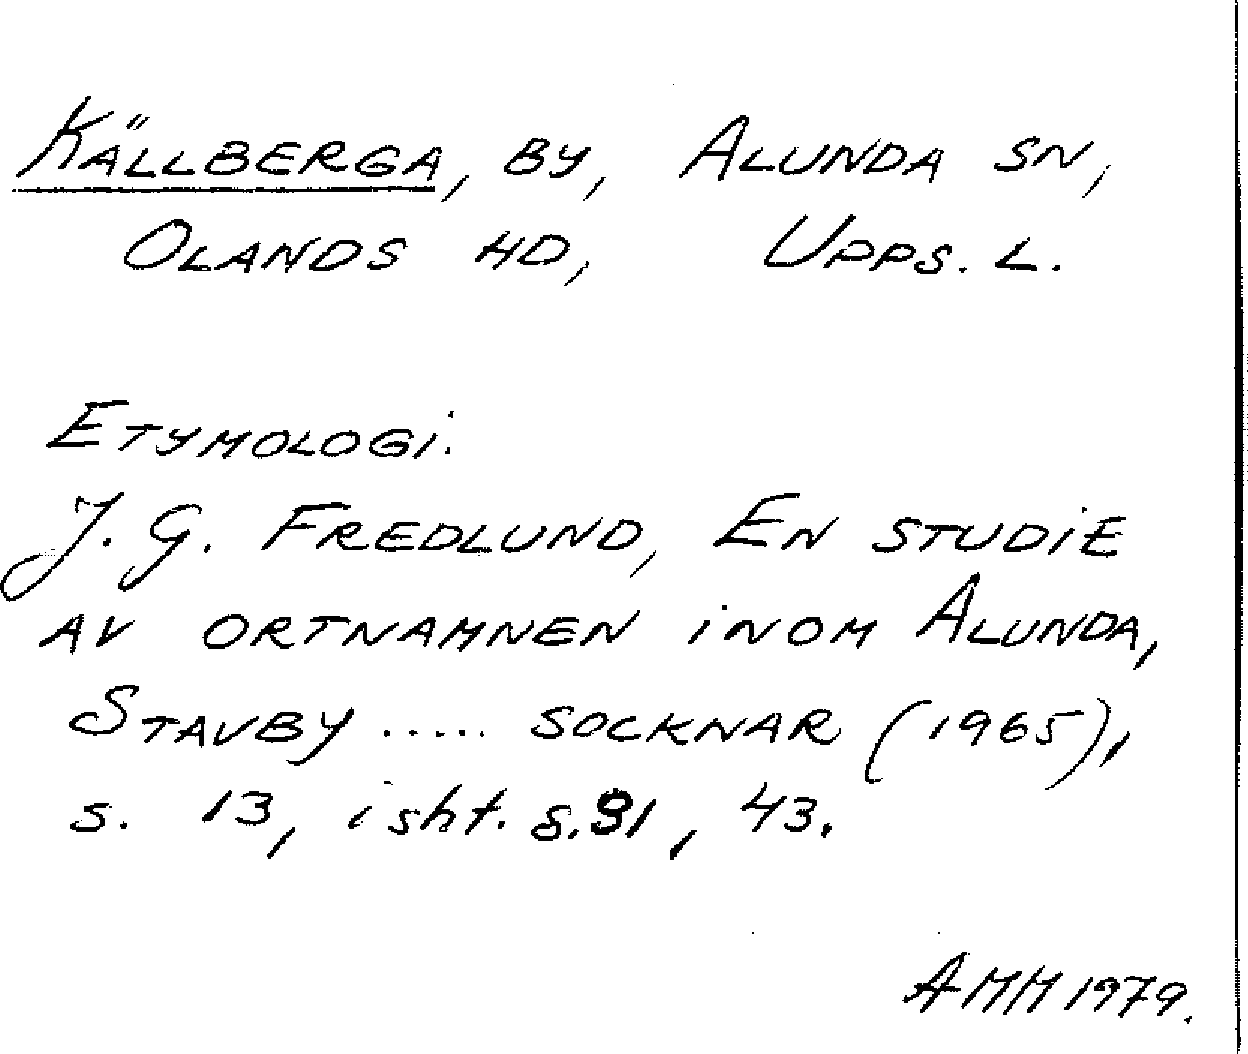 Källberga, by, Alunda sn,
Olands hd, Upps. l.
Etymologi.
J. G. Fredlund, En studie
av ortnamnen inom Alunda,
Stavby ..... socknar (1965),
s. 13, i sht. s. 31, 43.
AMM 1979.